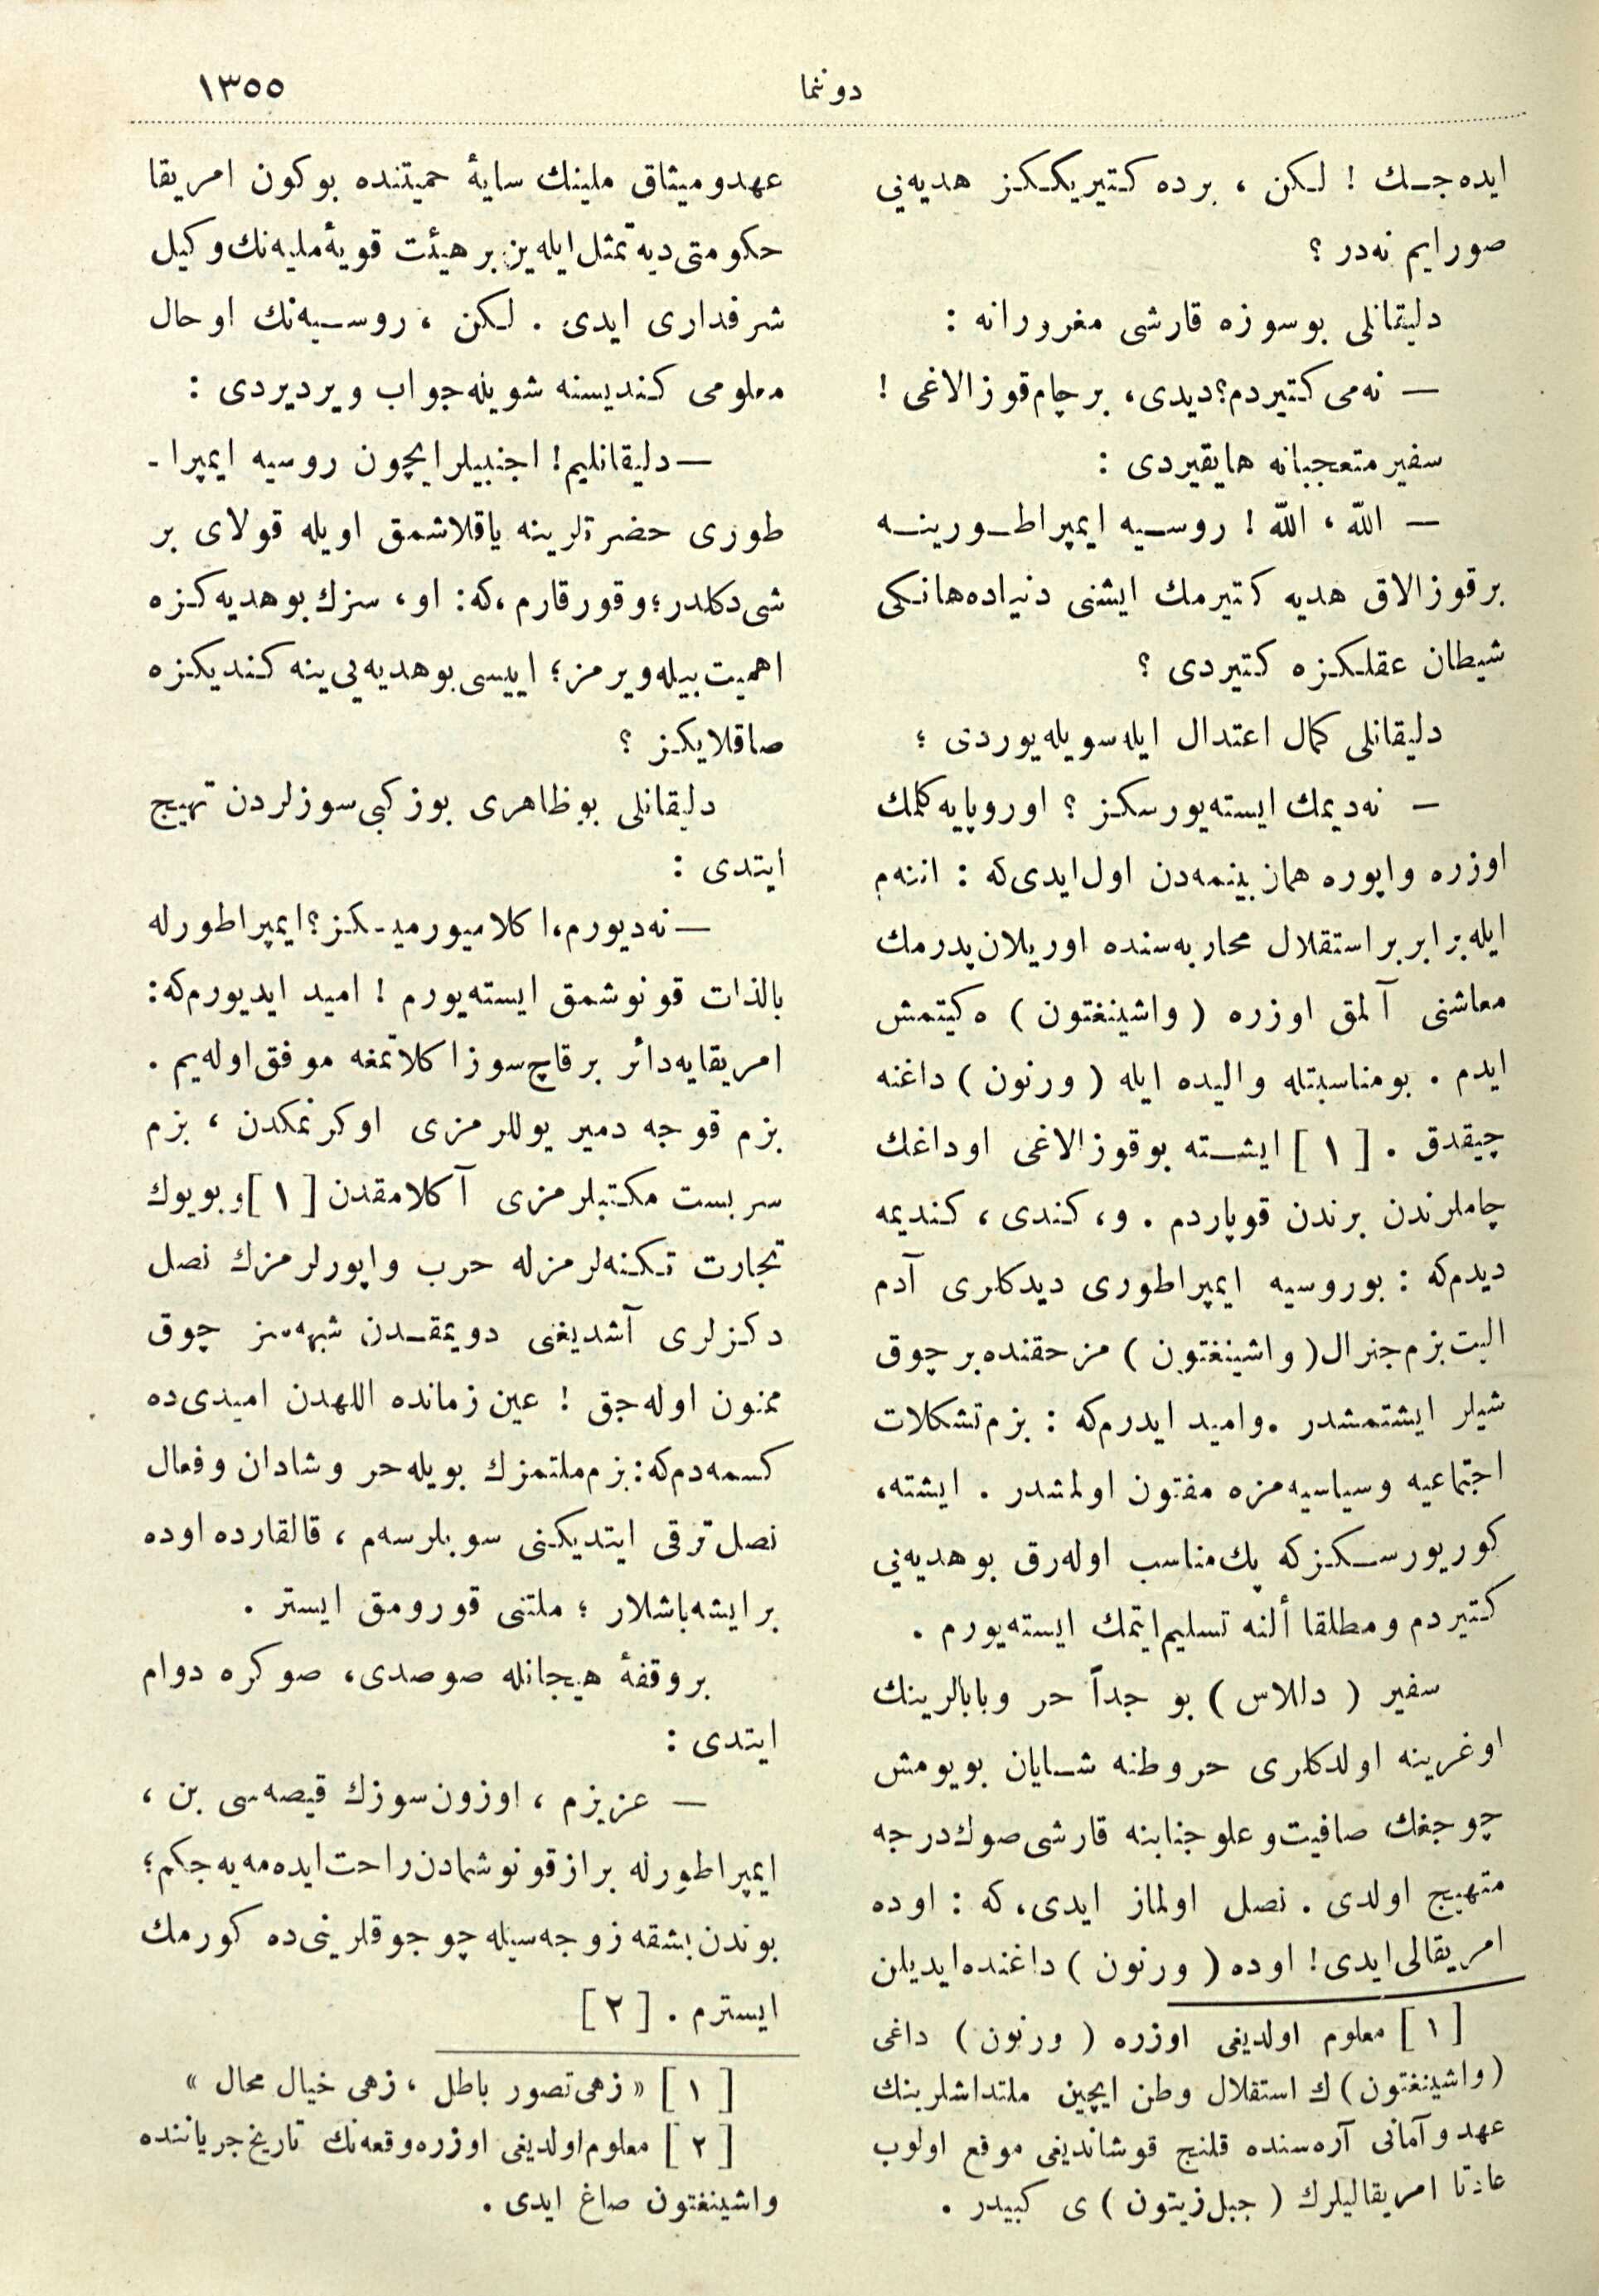 دونما
١٣٥٥
ایده‌جـك ! لـکن ، برده کـتیریکـکـز هدیه‌نی
صورایم نه‌در ؟
دلیقانلی بوسوزه قارشی مغرورانه :
— نه‌می کتیردم؟ دیدی، برچام‌قوزالاغی !
سفیر متعجبانه هایقیردی :
— اللّٰه ، اللّٰه ! روسـیه ایمپراطـورینـه
برقوزالاق هدیه کتیرمك ایشنی دنیاده‌هانـکی
شیطان عقلـکـزه کتیردی ؟
دلیقانلی کمال اعتدال ایله سویله‌یوردی ؛
— نه‌دیمك ایسته‌یورسکـز ؟ اوروپایه کلمك
اوزره واپوره هماز بینمه‌دن اول‌ایدی‌که : اننه‌م
ایله برابر بر استقلال محاربه‌سنده اوریلان پدرمك
معاشنی آلمق اوزره ( واشینغتون ) ه کیتمش
ایدم . بومناسبتله والیده ایله ( ورنون ) داغنه
چیقدق . [ ١ ] ایشـته بوقوزالاغی اوداغك
چاملرندن برندن قوپاردم . و، کندی ، کندیمه
دیدم‌که : بوروسیه ایمپراطوری دیدکلری آدم
البت بزم جنرال ( واشینغتون ) مز حقنده برچوق
شیلر ایشتمشدر . وامید ایدرم‌که : بزم تشکلات
اجتماعیه وسیاسیه‌مزه مفتون اولمشدر . ایشته،
کوریورسـکـزکه پك‌مناسب اوله‌رق بوهدیه‌نی
کتیردم ومطلقا ألنه تسلیم ایتمك ایسته‌یورم .
سفیر ( داللاس ) بو جداً حر وبابالرینك
اوغرینه اولدکلری حروطنه شـایان بویومش
چوجغك صافیت و علو جنابنه قارشی صوك‌درجه
متهیج اولدی . نصل اولماز ایدی، که : اوده
امریقالی‌ایدی ! اوده ( ورنون ) داغنده ایدیلن
[ ١ ] معلوم اولدیغی اوزره ( ورنون ) داغی
( واشینغتون ) ك استقلال وطن ایچین ملتداشلرینك
عهد و آمانی آره‌سنده قلنج قوشاندیغی موقع اولوب
عادتا امریقالیلرك ( جبل‌زیتون ) ی کبیدر .
عهدومیثاق ملینك سایهٔ حمیتنده بوکون امریقا
حکومتی دیه تمثل ایله‌ین بر هیئت قویهٔ ملیه‌نك وکیل
شرفداری ایدی . لـکن ، روسـیه‌نك اوحال
معلومی کندیسنه شویله جواب ویردیردی :
— دلیقانلیم ! اجنبیلر ایچون روسیه ایمپرا-
طوری حضرتلرینه یاقلاشمق اویله قولای بر
شی دکلدر ؛ وقورقارم ،که : او، سزك بوهدیه‌کـزه
اهمیت بیله ویرمز ؛ اییسی بوهدیه‌یی‌ینه کندیکزه
صاقلایکـز ؟
دلیقانلی بوظاهری بوزکبی سوزلردن تهیج
ایتدی :
— نه‌دیورم، اکلامیورمیـکـز؟ ایمپراطورله
بالذات قونوشمق ایسته‌یورم ! امید ایدیورم‌که:
امریقایه‌دائر برقاچ سوز اکلاتمغه موفق اوله‌یم .
بزم قوجه دمیر یوللرمزی اوکرنمکدن ، بزم
سربست مکـتبلرمزی آکلامقدن [ ١ ] وبویوك
تجارت تـکنه‌لرمزله حرب واپورلرمزك نصل
دکـزلری آشدیغنی دویمقـدن شبهه‌سز چوق
ممنون اوله‌جق ! عین زمانده اللهدن امیدی‌ده
کسمه‌دم‌که : بزم ملتمزك بویله حر وشادان وفعال
نصل ترقی ایتدیکنی سویلرسه‌م ، قالقارده اوده
برایشه‌باشلار ؛ ملتنی قورومق ایستر .
بروقفهٔ هیجانله صوصدی، صوکره دوام
ایتدی :
— عزیزم ، اوزون‌سوزك قیصه‌سی بن ،
ایمپراطورله براز قونوشمادن راحت‌ایده‌مه‌یه‌جکم ؛
بوندن بشقه زوجه‌سیله چوجوقلرینی‌ده کورمك
ایسترم . [ ٢ ]
[ ١ ] « زهی تصور باطل ، زهی خیال محال »
[ ٢ ] معلوم اولدیغی اوزره‌وقعه‌نك تاریخ جریاننده
واشینغتون صاغ ایدی .